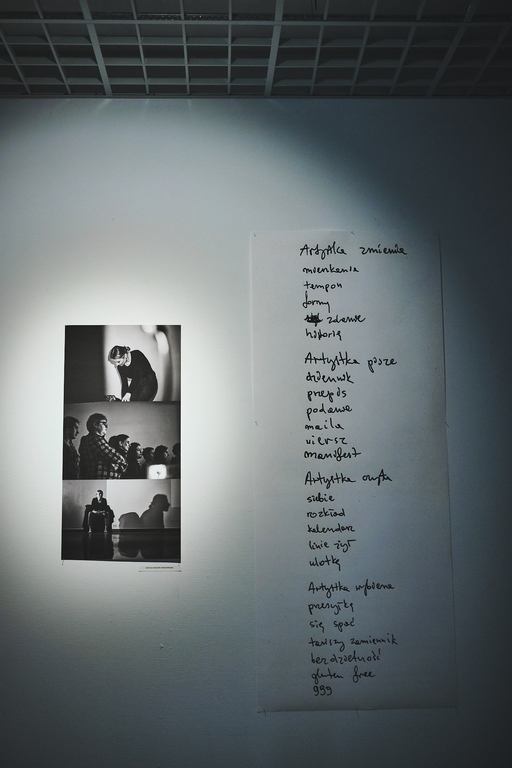 Artystka zmienia
mieszkania
tampon
formę
zdanie
historię
Artystka pisze
dziennik
przepis
podanie
maila
wiersz
manifest
Artystka czyta
siebie
rozkład
kalendarz
linie żył
ulotkę
Artystka wybiera
przesyłkę
się spać
tańszy zamiennik
bezdzietność
gluten free
999